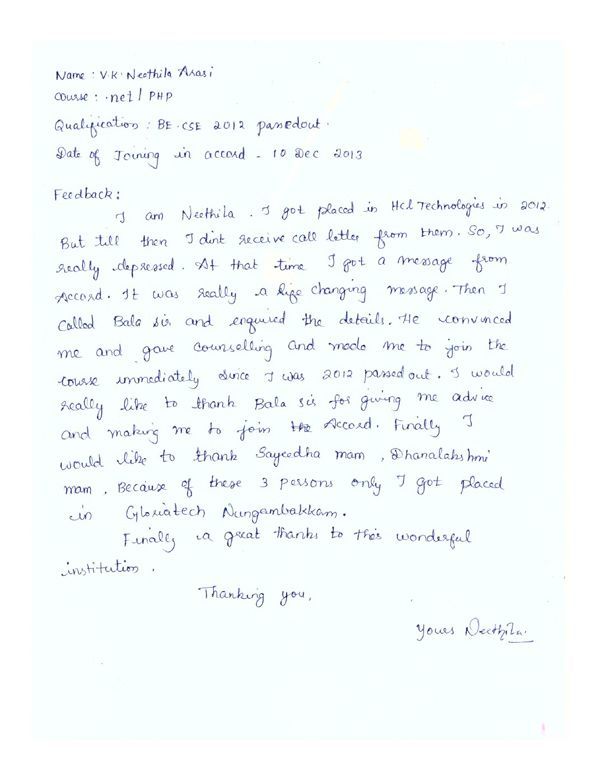 Name : V.K. Neethila Arasi
Course : .net / PHP
Qualification : BE.CSE 2012 passedout.
Date of Joining in accord - 10 Dec 2013
Feedback :
I am Neethila. I got placed in Hcl Technologies in 2012.
But till then I dint receive call letter from them. So, I was
really depressed. At that time I got a message from
Accord. It was really a life changing message. Then I
called Bala sir and enquired the details. He convinced
me and gave counselling and made me to join the
course immediately since I was 2012 passed out. I would
really like to thank Bala sir for giving me advice
and making me to join the Accord. Finally I
would like to thank Sayeedha mam, Dhanalakshmi
mam, Because of these 3 persons only I got placed
in Gloriatech Nungambakkam.
Finally a great thanks to this wonderful
institution.
Thanking you,
Yours Neethila.